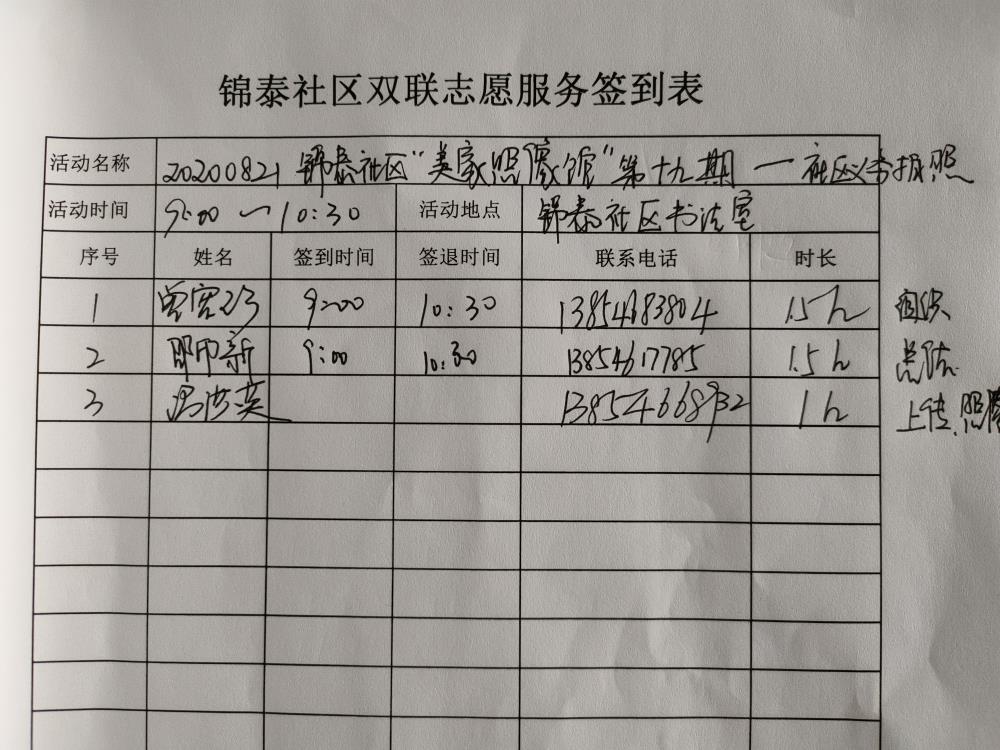 锦泰社区双联志愿服务签到表
活动名称 20200821 锦泰社区“美家照像馆”第十九期 一 社区义拍照
活动时间 9:00 — 10:30 活动地点 锦泰社区书法室
序号 姓名 签到时间 签退时间 联系电话 时长
1 9:00 10:30 13854683804 1.5h 组织
2 新 9:00 10:30 13854617785 1.5h 总结
3 冯洪英 13854668932 1h 上传.照